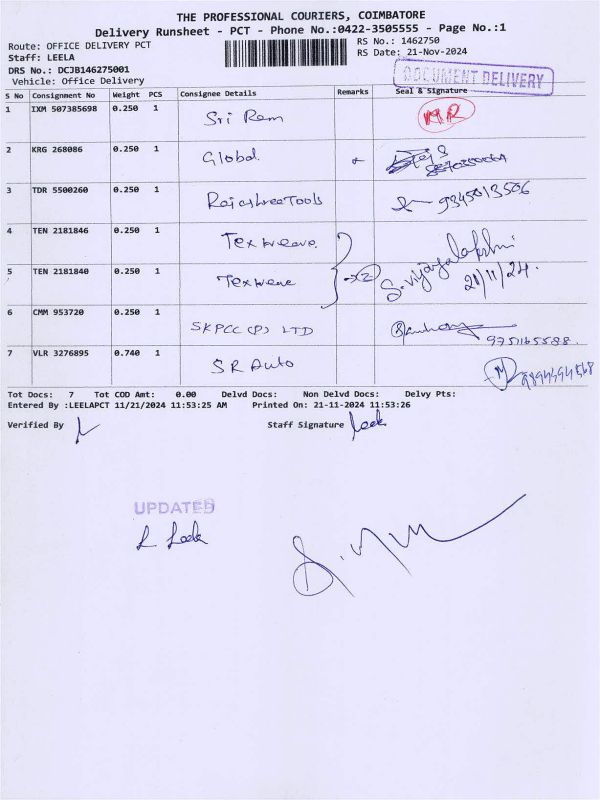 THE PROFESSIONAL COURIERS, COIMBATORE
Delivery Runsheet - PCT - Phone No.:0422-3505555 - Page No.:1
Route: OFFICE DELIVERY PCT
RS No.: 1462750
Staff: LEELA
RS Date: 21-Nov-2024
DRS No.: DCJB146275001
Vehicle: Office Delivery
DOCUMENT DELIVERY
S No Consignment No Weight PCS Consignee Details Remarks Seal & Signature
1 IXM 507385698 0.250 1 Sri Ram MR
2 KRG 268086 0.250 1 Global
3 TDR 5500260 0.250 1 Rajashree Tools 9345013506
4 TEN 2181846 0.250 1 Texweave
5 TEN 2181840 0.250 1 Texweave S. Vijayalakshmi
21/11/24.
6 CMM 953720 0.250 1 SKPCC (P) LTD 9751165588.
7 VLR 3276895 0.740 1 SR Auto
Tot Docs: 7 Tot COD Amt: 0.00 Delvd Docs: Non Delvd Docs: Delvy Pts:
Entered By :LEELAPCT 11/21/2024 11:53:25 AM Printed On: 21-11-2024 11:53:26
Verified By Staff Signature
UPDATED